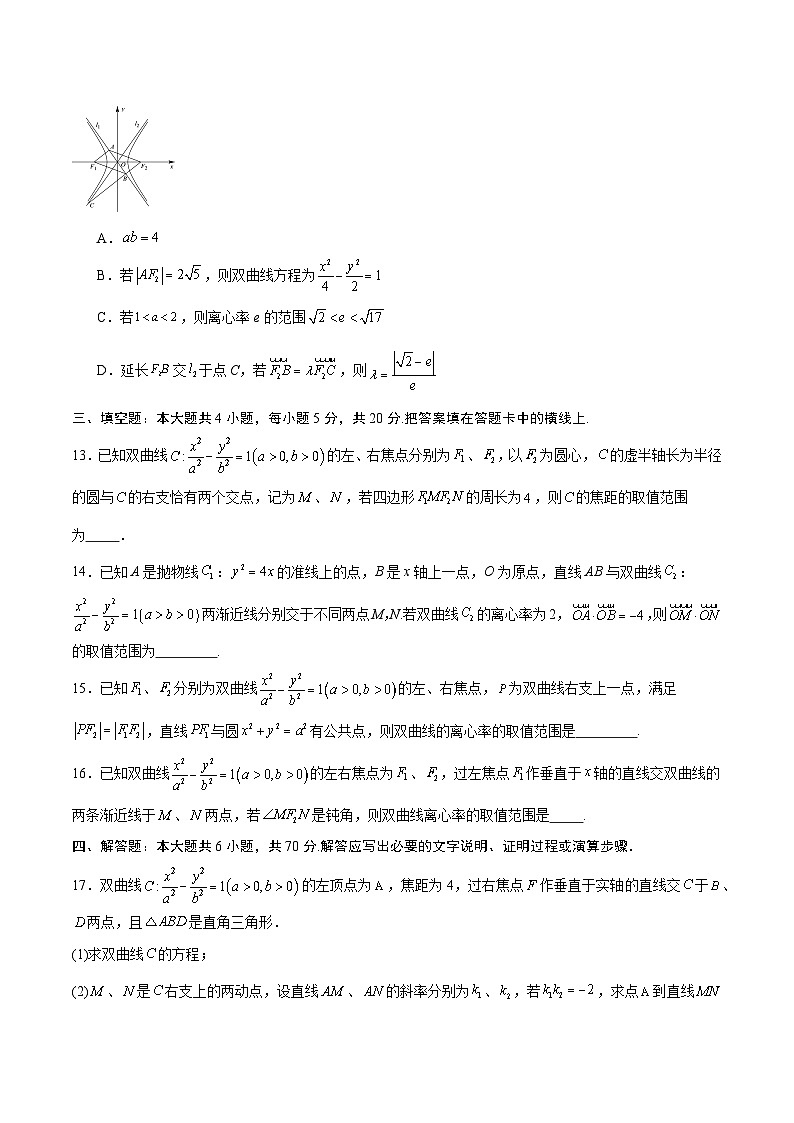 y
l₁ l₂
A
F₁ O F₂ x
B
C
A．ab = 4
B．若|AF₂| = 2√5，则双曲线方程为x²/4 − y²/2 = 1
C．若1 < a < 2，则离心率 e 的范围√2 < e < √17
D．延长F₂B交l₂于点 C，若F₂B = λF₂C，则λ = |√2 − e|/e
三、填空题：本大题共 4 小题，每小题 5 分，共 20 分.把答案填在答题卡中的横线上.
13．已知双曲线C: x²/a² − y²/b² = 1(a > 0, b > 0)的左、右焦点分别为F₁、F₂，以F₂为圆心，C的虚半轴长为半径
的圆与C的右支恰有两个交点，记为M、N，若四边形F₁MF₂N的周长为4，则C的焦距的取值范围
为_____．
14．已知A是抛物线C₁：y² = 4x的准线上的点，B是x轴上一点，O为原点，直线AB与双曲线C₂：
x²/a² − y²/b² = 1(a > b > 0)两渐近线分别交于不同两点M,N.若双曲线C₂的离心率为 2，OA·OB = −4，则OM·ON
的取值范围为_________.
15．已知F₁、F₂分别为双曲线x²/a² − y²/b² = 1(a > 0, b > 0)的左、右焦点，P为双曲线右支上一点，满足
|PF₂| = |F₁F₂|，直线PF₁与圆x² + y² = a²有公共点，则双曲线的离心率的取值范围是_________.
16．已知双曲线x²/a² − y²/b² = 1(a > 0, b > 0)的左右焦点为F₁、F₂，过左焦点F₁作垂直于x轴的直线交双曲线的
两条渐近线于M、N两点，若∠MF₂N是钝角，则双曲线离心率的取值范围是_____.
四、解答题：本大题共 6 小题，共 70 分.解答应写出必要的文字说明、证明过程或演算步骤．
17．双曲线C: x²/a² − y²/b² = 1(a > 0, b > 0)的左顶点为A，焦距为 4，过右焦点F作垂直于实轴的直线交C于B、
D两点，且△ABD是直角三角形．
(1)求双曲线C的方程；
(2)M、N是C右支上的两动点，设直线AM、AN的斜率分别为k₁、k₂，若k₁k₂ = −2，求点A到直线MN